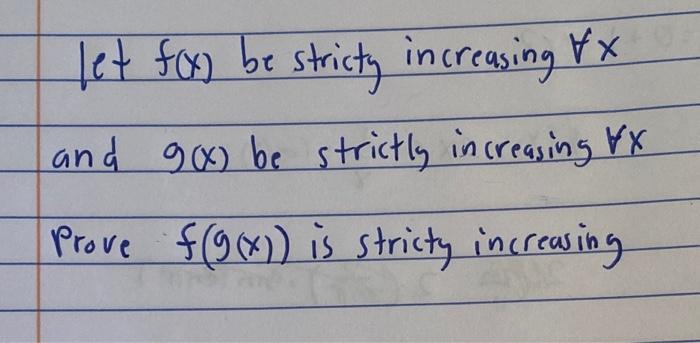 let f(x) be stricty increasing ∀x
and g(x) be strictly increasing ∀x
Prove f(g(x)) is stricty increasing